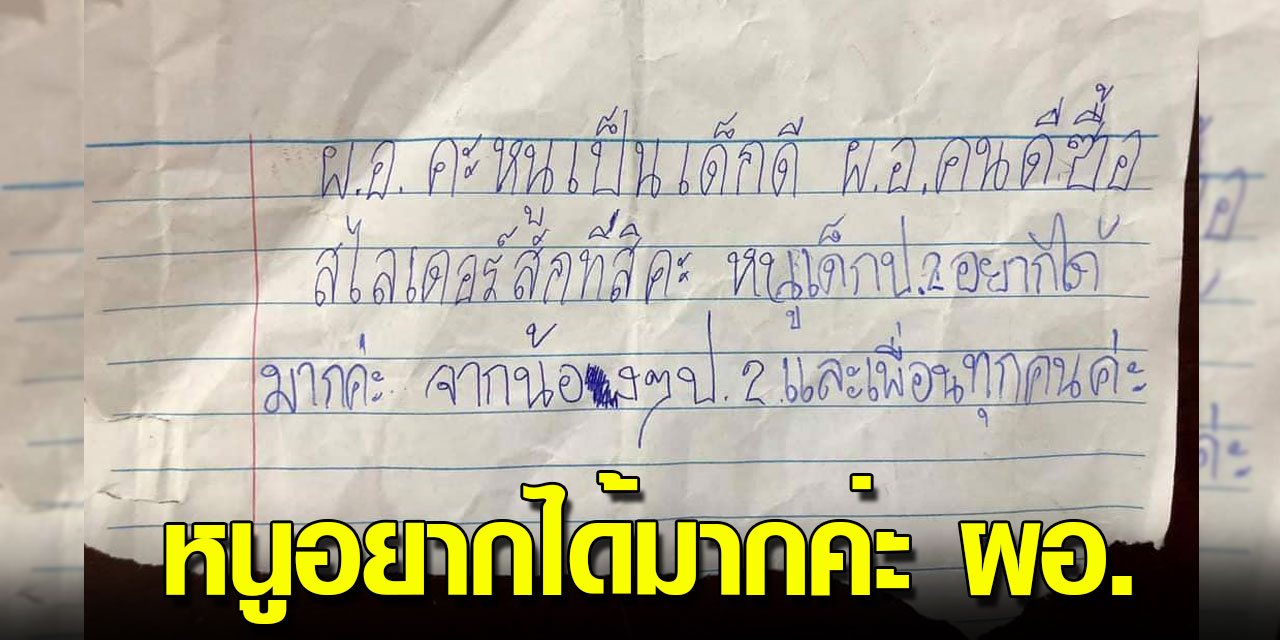 ผ.อ. คะหนูเป็นเด็กดี ผ.อ.คนดีซื้อ
สไลเดอร์สักทีสิคะ หนูเด็กป.2อยากได้
มากค่ะ จากน้องๆป.2.และเพื่อนทุกคนค่ะ
หนูอยากได้มากค่ะ ผอ.